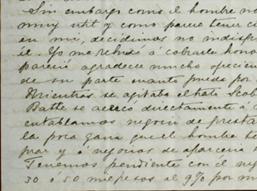 Sin embargo como el hombre no
muy util y como parece tener
en mi, decidimos no
él. Yo me rehusé á cobrarle
pareció agradece mucho
de su parte cuanto puede por
Mientras se agitaba el
Batlle se acercó directamente á
entablamos negocio de
la poca gana que el hombre
y á negocios de aparceria
Tenemos pendiente con el
30 ó 50 mil pesos al 9% por